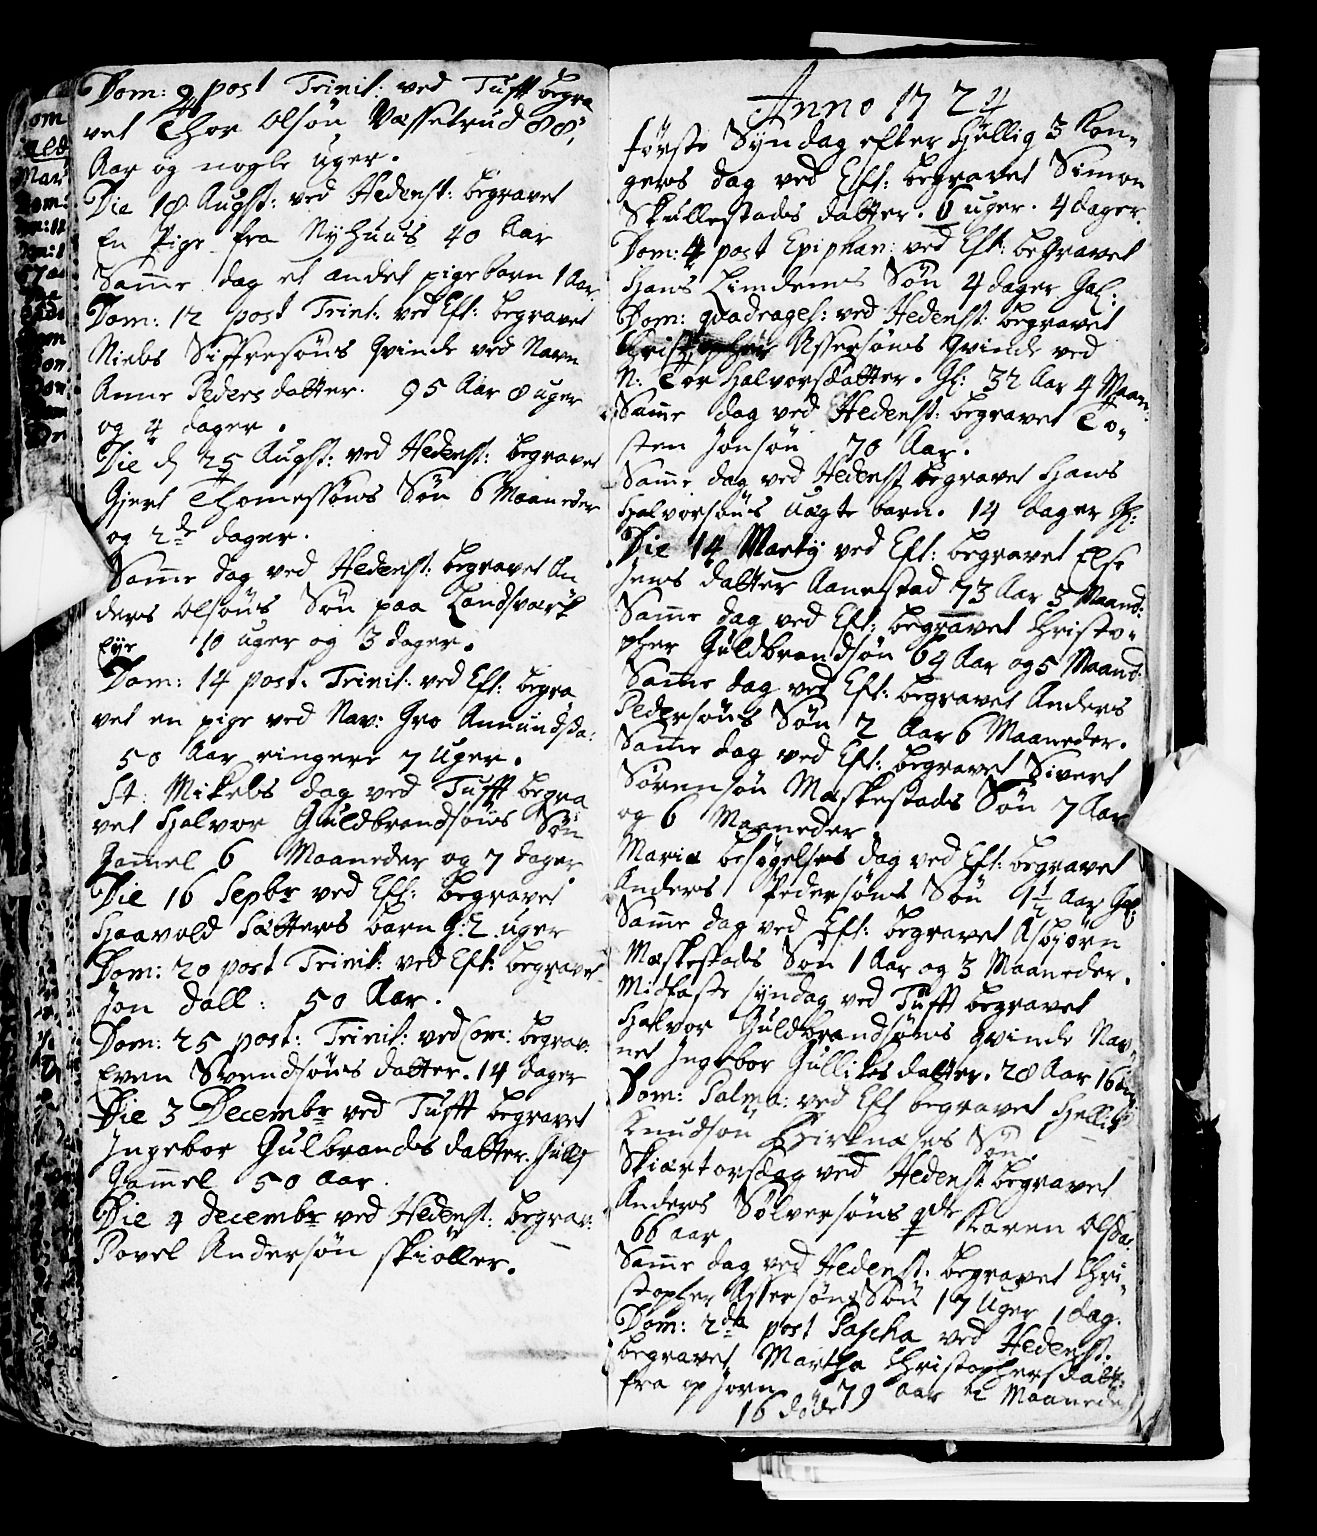 Dom: 9 post Trinit: ved Tufft begra
vet Thor Olsøn Vassetrud 88
Aar og nogle uger.
Die 18 Augst: ved Hedenst: begravet
En Pige fra Nyhuus 40 Aar
Samme dag et andet pigebarn 1 Aar.
Dom: 12 post Trinit: ved Eft: begravet
Niels Siffresøns Qvinde ved Navn
Anne Pedersdatter. 95 Aar 8 uger
og 4 dager.
Die 25 Augst: ved Hedenst: begravet
Gjert Thomessøns Søn 6 Maaneder
og 2de dager.
Samme dag ved Hedenst: begravet An
ders Olsøns Søn paa Landsværk
Eye 10 uger og 3 dager.
Dom: 14 post. Trinit: ved Eft: begra
vet en pige ved Nav: Gro Amundsda:
50 Aar ringere 7 Uger.
St: Mikels dag ved Tufft begra
vet Halvor Guldbrandsøns Søn
Gammel 6 Maaneder og 7 dager
Die 16 Sepbr ved Eft: begravet
Haavold Sætters barn G: 2 uger
Dom: 20 post Trinit: ved Eft: begravet
Jon Dall: 50 Aar.
Dom: 25 post: Trinit: ved Com: begrav:
Even Svendsøns datter. 14 dager
Die 3 Decembr ved Tufft begravet
Ingebor Gulbrandsdatter.
Gammel 50 Aar.
Die 4 decembr ved Hedenst: begrav:
Povel Andersøn skiøller.
Anno 1724
første Syndag efter Hellig 3 Kon-
gers dag ved Eft: begravet Simon
Skullestads datter. uger. 4 dager.
Dom: 4 post Epiphan: ved Eft: begravet
Hans Lindems Søn 4 dager Gal:
Dom: quadrages: ved Hedenst: begravet
Christopher Assersøns Qvinde ved
N: Tor Halvorsdatter. Gl: 32 Aar 4 Maan:
Samme dag ved Hedenst: begravet To-
sten Jonsøn 70 Aar.
Samme dag ved Hedenst begravet Hans
Halvorsøns uægte barn. 14 dager Gl:
Die 14 Martij ved Eft: begravet Else
Jensdatter Aanestad 73 Aar 3 Maand:
Samme dag ved Eft: begravet Christo-
pher Guldbrandsøn 64 Aar og 5 Maand:
Samme dag ved Eft: begravet Anders
Pedersøns Søn 2 Aar 6 Maaneder.
Samme dag ved Eft: begravet Sivert
Sørensøn Mæskestads Søn 7 Aar
og 6 Maaneder
Mariæ besøgelses dag ved Eft: begravet
Anders Pedersøns Søn 1 1/2 Aar Gal:
Samme dag ved Eft: begravet Asbjørn
Mæskestads Søn 1 Aar og 3 Maaneder.
Midfaste syndag ved Tufft begravet
Halvor Guldbrandsøns Qvinde Nav-
net Ingebor Gulliksdatter. 28 Aar 16
Dom: Palma: ved Eft begravet Hellik
Knudsøn Birknæses Søn.
Skiærtorsdag ved Hedenst begravet
Anders Sølversøns Karen Olsda:
66 aar
Samme dag ved Hedenst. begravet Chri-
stopher Assersøns Søn 17 Uger 1 dag.
Dom: 2da post Pascha ved Hedenst.
begravet Martha Christophersdatt:
fra Hjorn 79 aar 2 Maaneder
16 døde